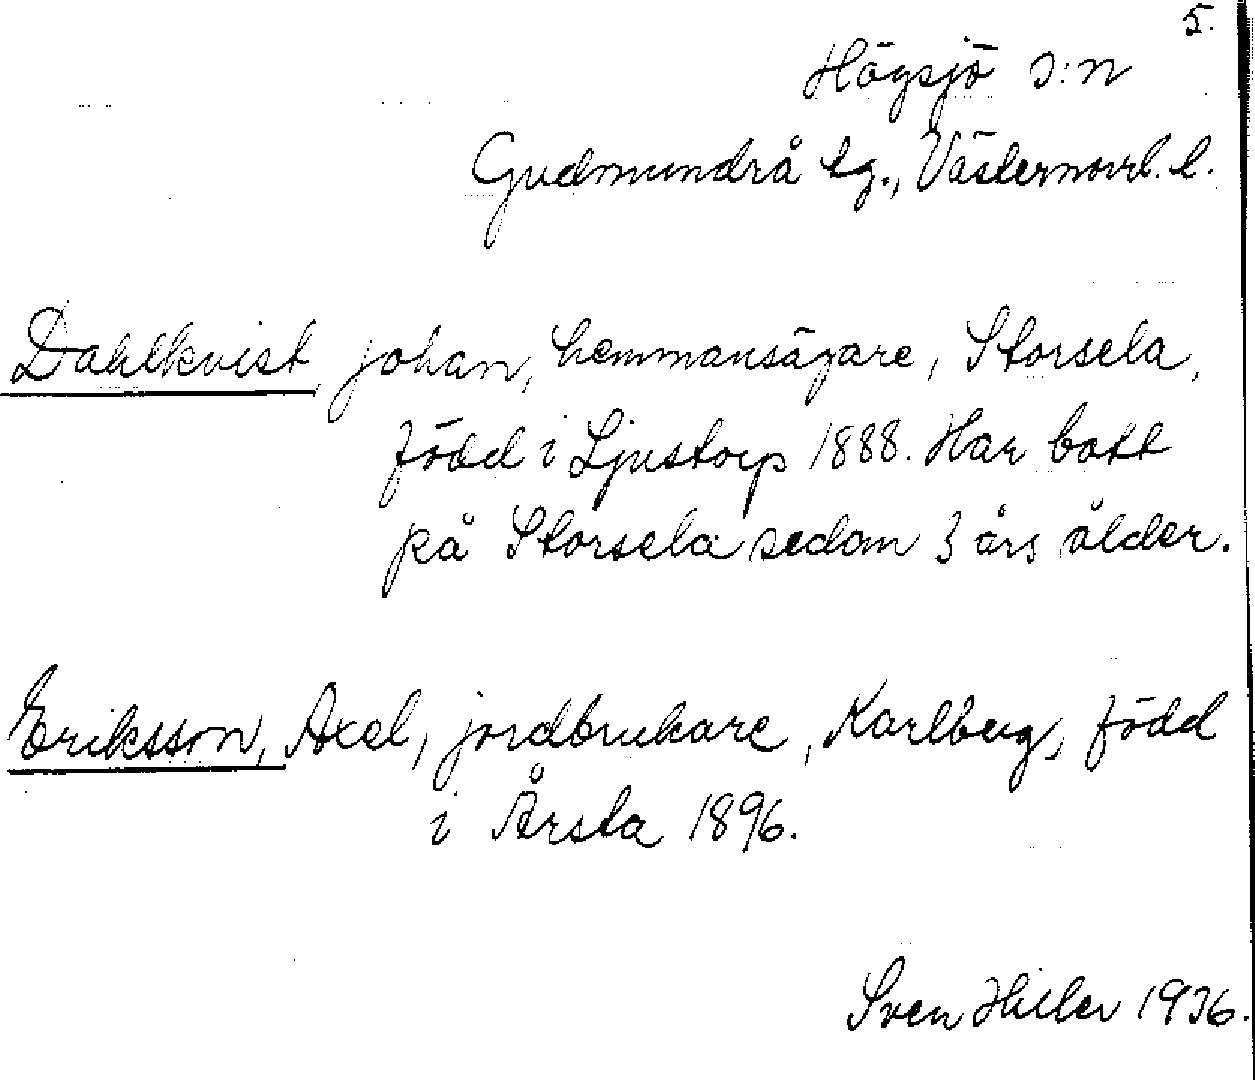 5.
Högsjö s:n
Gudmundrå tg., Västernorrl. l.
Dahlkvist, Johan, hemmansägare, Storsela,
född i Ljustorp 1888. Har bott
på Storsela sedan 3 års ålder.
Eriksson, Axel, jordbrukare, Karlberg, född
i Årsta 1896.
Sven Hiller 1936.